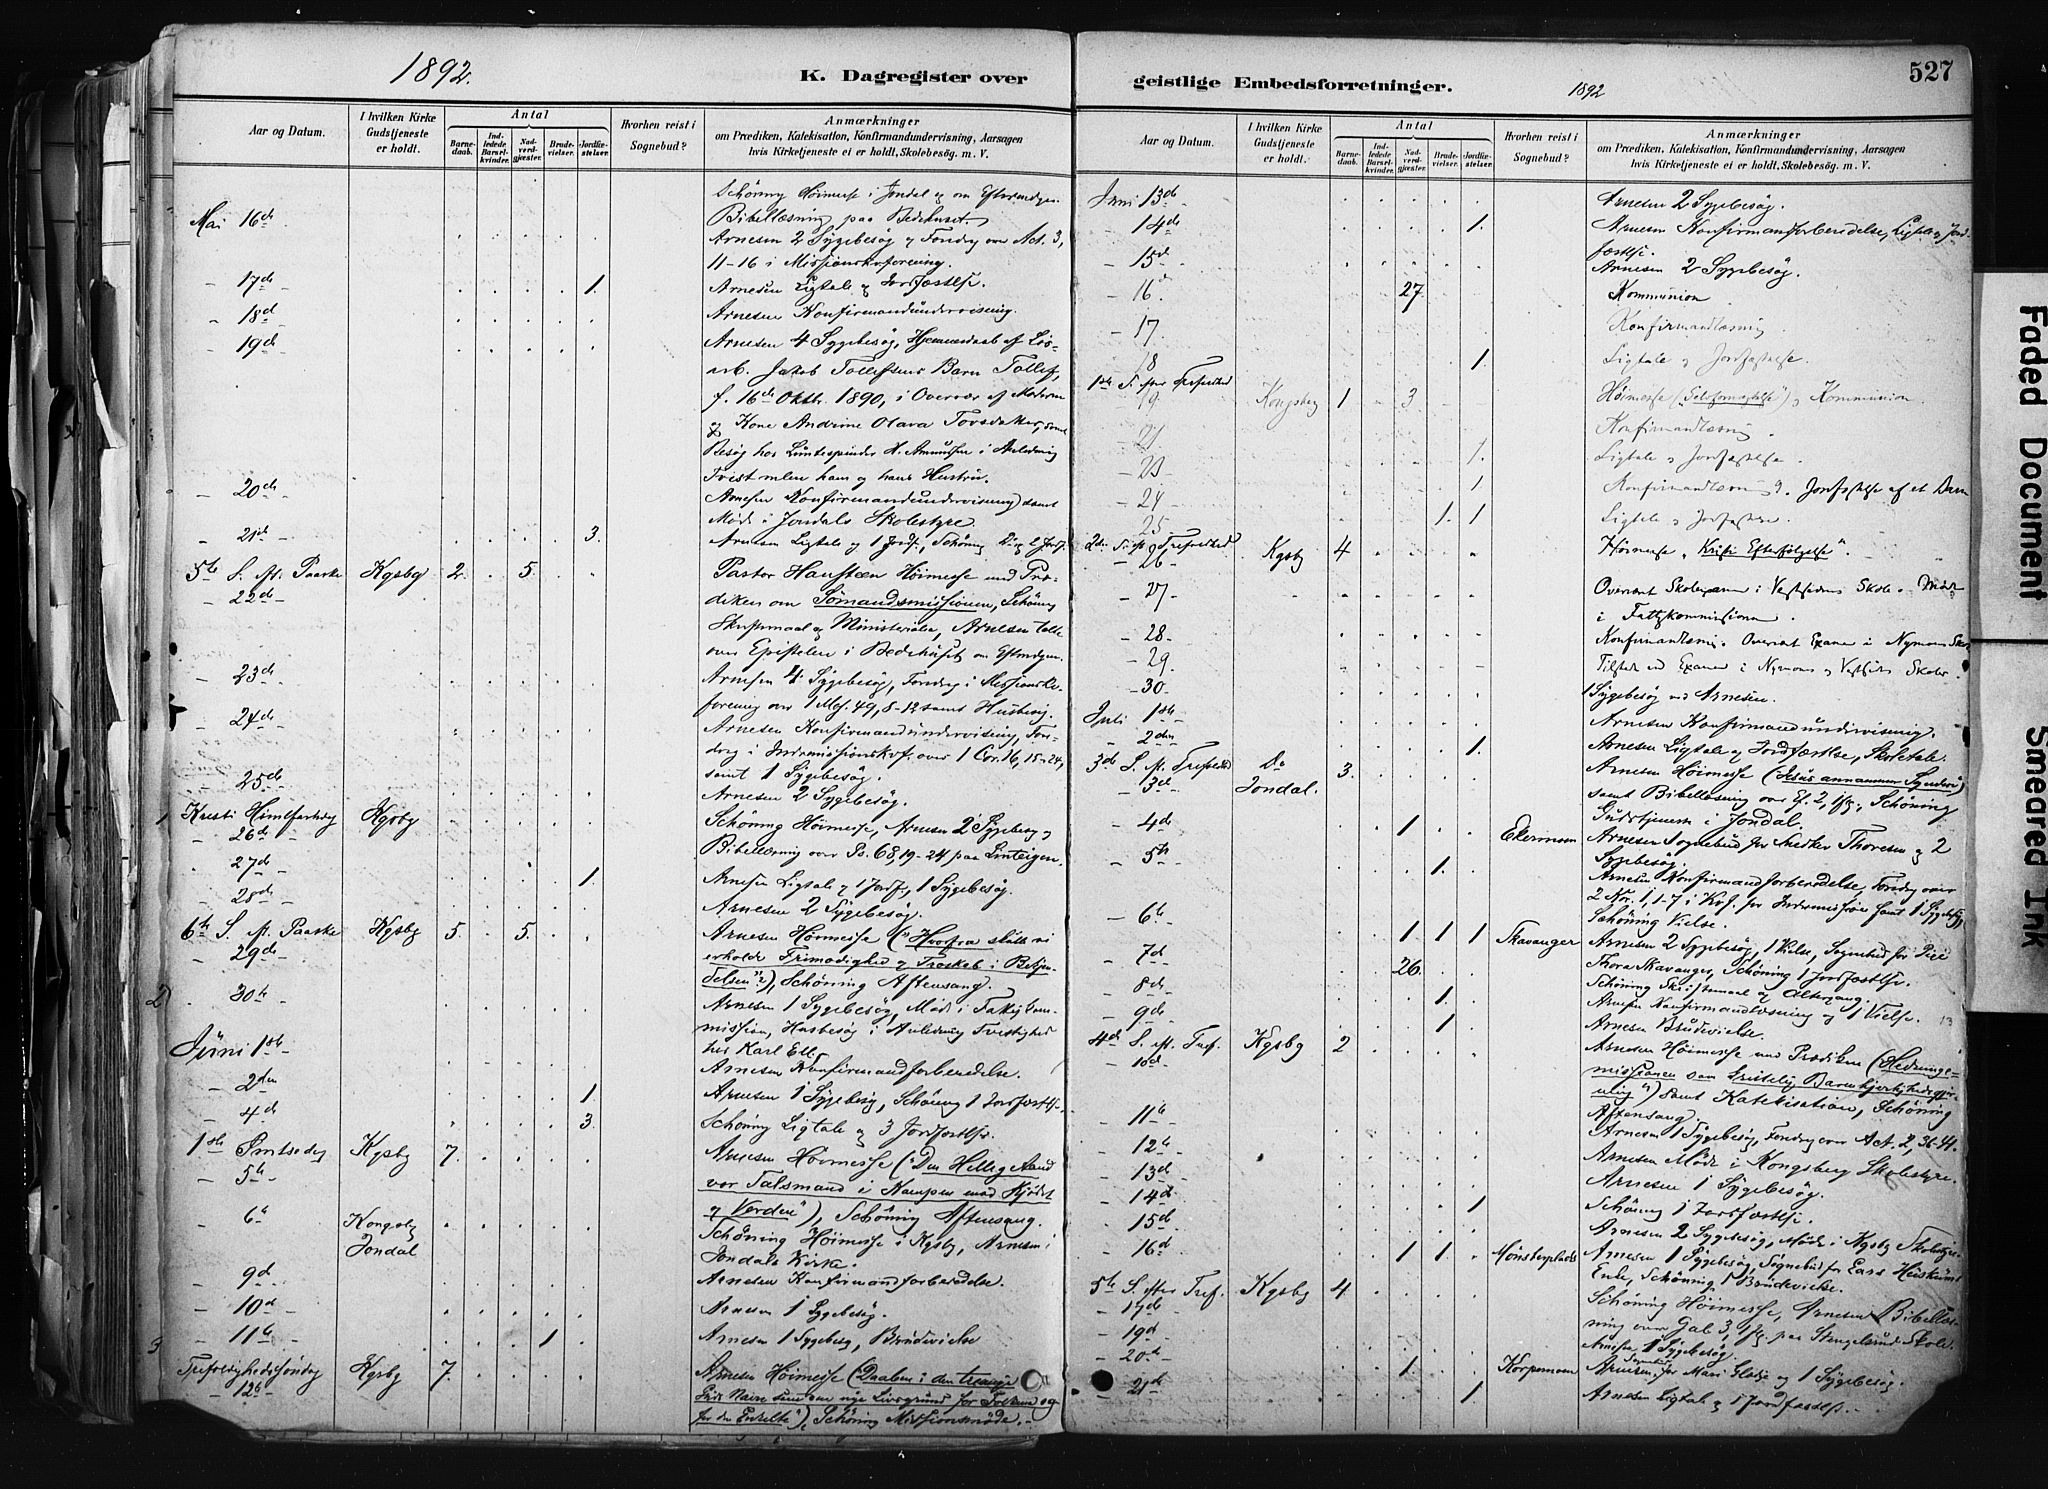 1892.
K. Dagregister over
Aar og Datum.
I hvilken Kirke Gudstjeneste er holdt.
Antal
Barne-daab.
Ind-ledede Barsel-kvinder.
Nad-verd-gjæster.
Brude-vielser.
Jordfæ-stelser.
Hvorhen reist i Sognebud?
Anmærkninger
om Prædiken, Katekisation, Konfirmandundervisning, Aarsagen
hvis Kirketjeneste ei er holdt, Skolebesög. m. V.
Schöning Höimesse i Jondal og om Eftermdgen
Mai 16de
Bibellæsning paa Bedehuset.
Arnesen 2 Sygebesög og Foredrag over Act. 3,
11-16 i Missionskvforening.
- 17de 1. Arnesen Ligtale og Jordfæstelse.
- 18d Arnesen Konfirmandundervisning.
- 19d Arnesen 4 Sygebesög, Hjemmedaab af Lös-
arb. Jakob Tollefsens Barn Tollef,
f. 16de Oktbr. 1890, i Overvær af Moderen
og Kone Andrine Olava Torsdakker, samt
Besög hos Luntespinder H. Amundsen i Anledning
Tvist mlem ham og hans Hustru.
- 20de Arnesen Konfirmandundervisning samt
Möde i Jondals Skolestyre
- 21de 3. Arnesen Ligtale og 1 Jordf., Schöning Do og 2 Jordf.
5te S. ft. Paaske Kgsbg 2. 5. Pastor Hansteen Höimesse med Præ-
- 22de diken om Sömandsmissionen, Schöning
Skriftemaal og Ministerialia, Arnesen talte
over Epistelen i Bedehuset om Eftmdgen.
- 23de Arnesen 4 Sygebesög, Foredrag i Missionskv-
forening over 1 Mos. 49, 8-12 samt Husbesög.
- 24de Arnesen Konfirmandundervisning, Fore-
drag i Indremissionskvf. over 1 Cor. 16, 15-24,
samt 1 Sygebesög.
- 25de Arnesen 2 Sygebesög.
1 Kristi Himlfartsdag Kgsbg Schöning Höimesse, Arnesen 2 Sygebesög og
- 26de Bibellæsning over Ps. 68, 19-24 paa Linteigen.
- 27de 1. Arnesen Ligtale og 1 Jordf., 1 Sygebesög.
- 28de Arnesen 2 Sygebesög.
6te S. ft. Paaske Kgsbg 5. 5. Arnesen Höimesse ("Hvorfra skulle vi
- 29de erholde Frimodighed og Troskab i Bekjen-
delsen"?), Schöning Aftensang.
2) - 30te Arnesen 1 Sygebesög, Möde i Fattigkom-
mission, Husbesög i Anledning Tvistighed
hos Karl Ell.
Juni 1ste Arnesen Konfirmandforberedelse.
- 2den 1 Arnesen 1 Sygebesög, Schöning 1 Jordfæstelse.
- 4d 3. Schöning Ligtale og 3 Jordfæstelser.
1ste Pintsedag Kgsbg 7. Arnesen Höimesse ("Den Hellig Aand
- 5te vor Talsmand i Kampen mod Kjödet
og Verden"), Schöning Aftensang.
- 6te Kongsbg Jondal Schöning Höimesse i Kgsbg, Arnesen i
Jondals Kirke.
- 9d Arnesen Konfirmandforberedelse.
- 10d Arnesen 1 Sygebesög.
- 11te 1 Arnesen 1 Sygebesög, Brudevielse
3 Trefoldighedssöndag Kgsbg 7. Arnesen Höimesse (Daaben i den treenige
- 12te Guds Navn som en nye Livsgrund for Folkene og
for den Enkelte"), Schöning Missionsmöde.
geistlige Embedsforretninger.
1892
527
Aar og Datum.
I hvilken Kirke Gudstjeneste er holdt.
Antal
Barne-daab.
Ind-ledede Barsel-kvinder.
Nad-verd-gjæster.
Brude-vielser.
Jordfæ-stelser.
Hvorhen reist i Sognebud?
Anmærkninger
om Prædiken, Katekisation, Konfirmandundervisning, Aarsagen
hvis Kirketjeneste ei er holdt, Skolebesög. m. V.
Juni 13de Arnesen 2 Sygebesög.
- 14de 1. Arnesen Konfirmandforberedelse, Ligtale og Jord-
fæstelse.
- 15d Arnesen 2 Sygebesög.
- 16d 27. Kommunion
- 17. Konfirmandlæsning
18 1. Ligtale og Jordfæstelse.
1ste S. efter Trefoldhed 19 Kongsberg 1 3 Höimesse ("Selvfornægtelse") og Kommunion.
- 21 Konfirmandlæsning.
- 23 1. Ligtale og Jordfæstelse.
- 24 1 Konfirmandlæsning. Jordfæstelse af et Barn
- 25 1. 1 Ligtale og Jordfæstelse.
2den S. ft. Trefoldhed - 26 Kgsbg 4 Höimesse "Kristi Efterfölgelse".
- 27 Overvært Skolexamen i Vestsidens Skole. Möde
i Fattigkommissionen.
- 28 Konfirmandlæsning. Overvært Examen i Nymoens Skole
- 29. Tilstede ved Examen i Nymoens og Vestsidens Skoler.
- 30. 1 Sygebesög ved Arnesen.
Juli 1ste Arnesen Konfirmandundervisning.
- 2den 1. Arnesen Ligtale og Jordfæstelse, Skoletale.
3de S. ft. Trefoldhed - 3de Do Jondal. 3. Arnesen Höimesse (Jesus annammer Syndere)
samt Bibellæsning over Ef. 2, 1fg., Schöning
Gudstjeneste i Jondal.
- 4de 1. Ekermoen Arnesen Sognebud for Snedker Thoresen og 2
Sygebesög.
- 5te 1. Arnesen Konfirmandforberedelse, Foredrag over
2 Kor. 1, 1-7 i Kvf. for Indremission samt 1 Sygebesög,
Schöning Vielse.
- 6te 1 1 1 Skavanger Arnesen 2 Sygebesög, 1 Vielse, Sognebud for Pige
Thora Skavanger, Schöning 1 Jordfæstelse.
- 7d 26. Schöning Skriftemaal og Altergang.
- 8de 1. Arnesen Konfirmandlæsning og 1 Vielse. 13
- 9de 1. Arnesen Brudevielse.
4de S. ft. Tref. - 10d Kgsbg 2 Arnesen Höimesse med Prædiken ("Hedninge-
missionen som kristelig Barmhjertighedsgjer-
ning") samt Katekisation, Schöning
Aftensang.
- 11te Arnesen 1 Sygebesög, Foredrag over Act. 2, 36-41.
- 12te Arnesen Möde i Kongsberg Skolestyre.
- 13d Arnesen 1 Sygebesög.
- 14de 1 Schöning 1 Jordfæstelse.
- 15d Arnesen 2 Sygebesög, Möde i Kgsbg Skolestyre.
- 16d 1 1. Mönsterplads Arnesen 1 Sygebesög, Sognebud for Lars
Enke, Schöning 1 Brudevielse.
5te S. efter Tref. - 17de Kgsbg 4 Schöning Höimesse, Arnesen Bibellæs-
- 19d ning over Gal. 3, 1fg. paa Stengelsrud Skole.
Arnesen 1 Sygebesög.
- 20de 1 Korpemoen Arnesen Sognebud for Mari Glatje og 1 Sygebesög.
- 21d 1 Arnesen Ligtale og 1 Jordfæstelse.
Faded Document
Smeared Ink